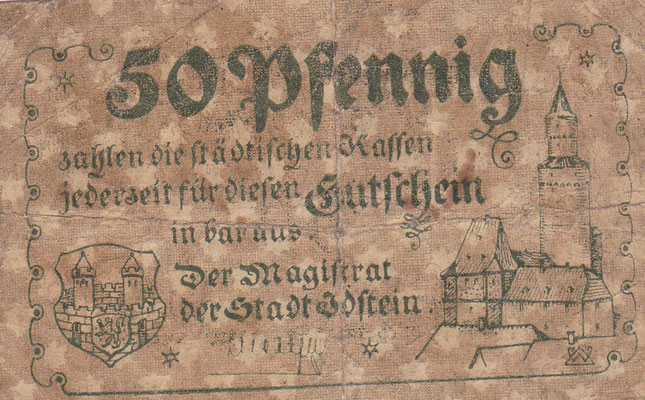 50 Pfennig
zahlen die städtischen Kassen
jederzeit für diesen Gutschein
in bar aus.
Der Magistrat
der Stadt Idstein.